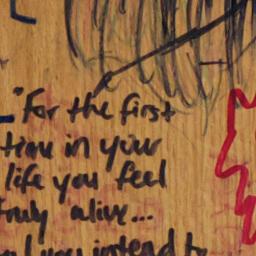 "For the first
time in your
life you feel
truly alive...
and you intend to